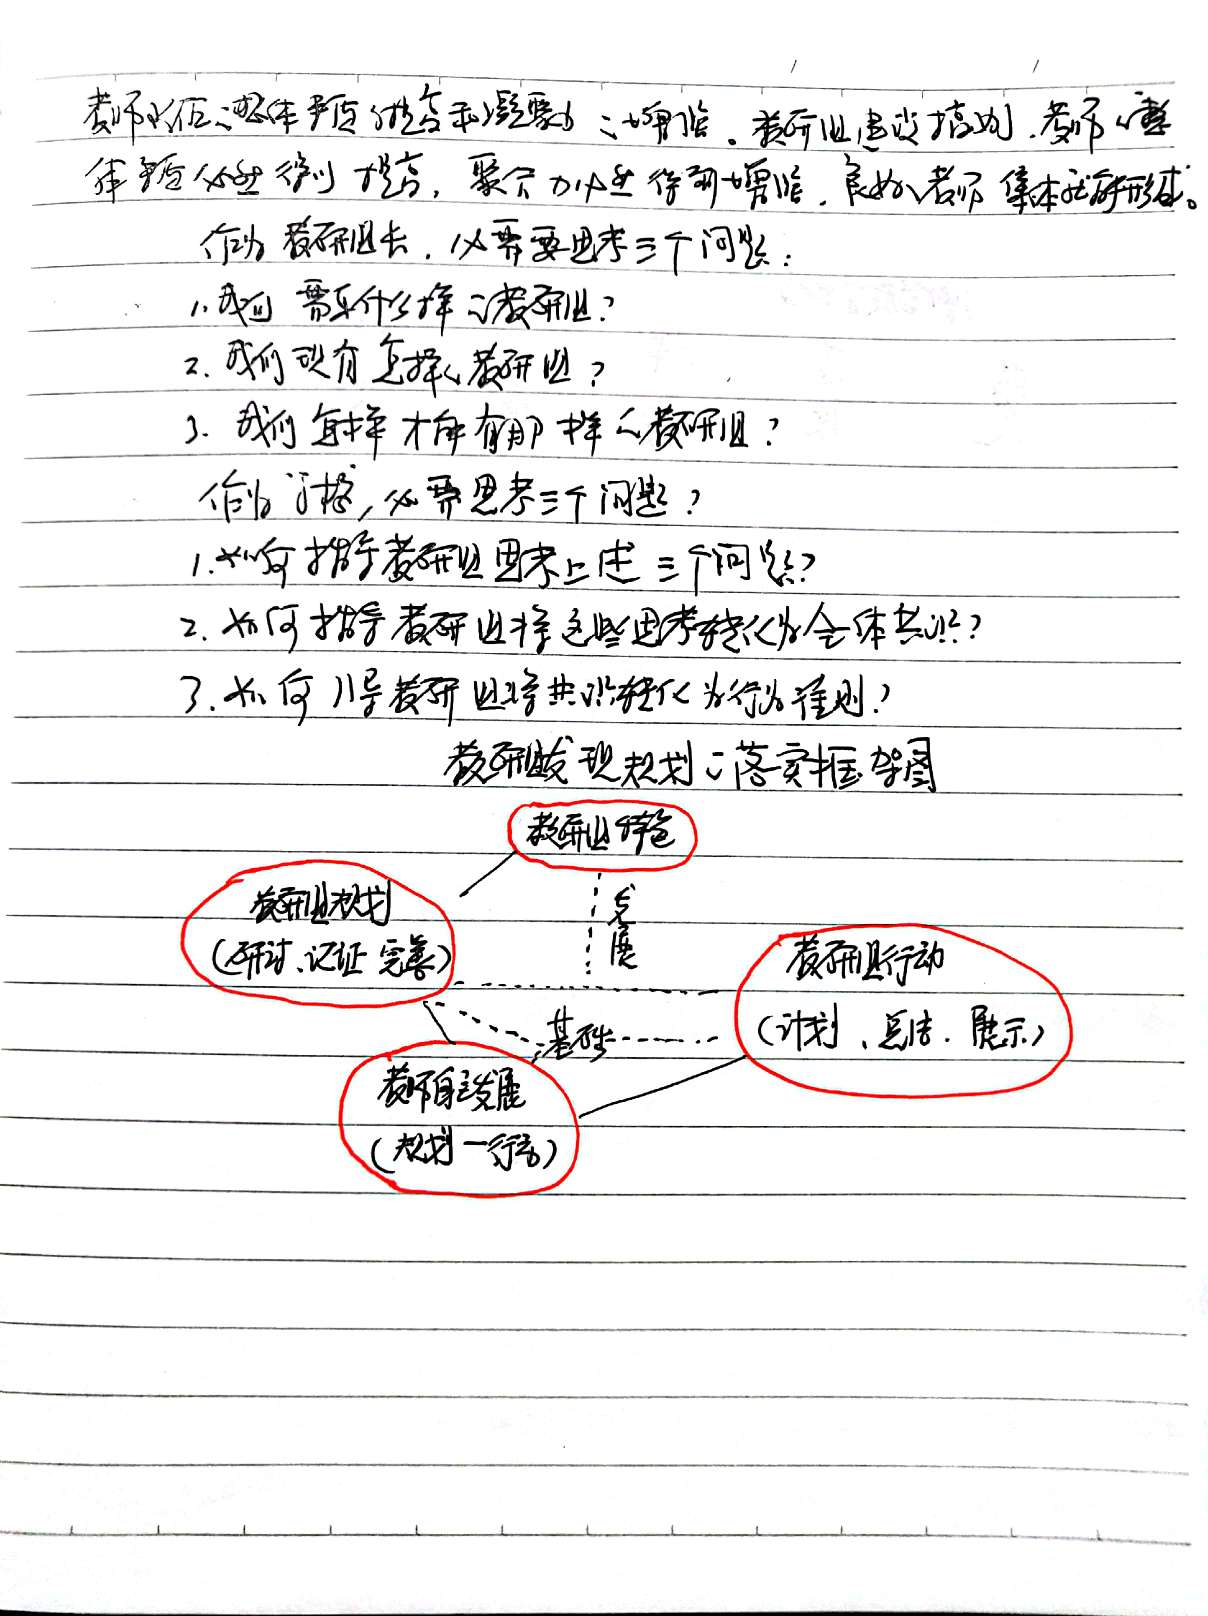 教师队伍的整体素质的提高和凝聚力的增强。教研组建设搞好,教师的整
体素质必然得到提高,聚合力必然得到增强,良好的教师集体就能形成。
作为教研组长,必需要思考三个问题:
1.我们需要什么样的教研组?
2.我们现有怎样的教研组?
3.我们怎样才能有那样的教研组?
作为学校,必要思考三个问题?
1.如何指导教研组思考上述三个问题?
2.如何指导教研组将这些思考转化为全体共识?
3.如何引导教研组将共识转化为行为准则?
教研组发现规划的落实框架图
教研组特色
教研组规划
(研讨、论证 完善)
发展
教研组行动
(计划、总结.展示)
基础
教师自主发展
(规划一行动)